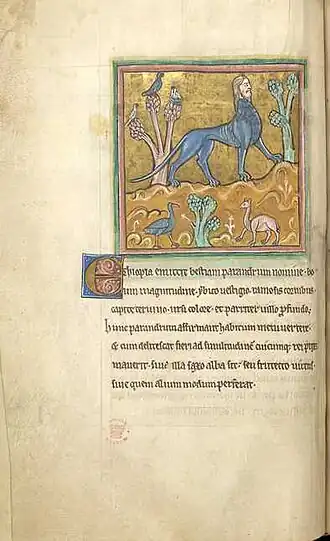 Ethiopia emittit bestiam parandrum nomine. bo
um magnitudine. ybico vestigio. ramosis cornibus.
capite ceruino. ursi colore. et pariter villo profundo.
hunc parandrum affirmant habitum metu vertere.
& cum delitescat fieri ad similitudinē cuicunq; rei ꝓxi
mauerit. siue illa saxo alba sit. seu frutecto uirens.
siue quem alium modum preferat.